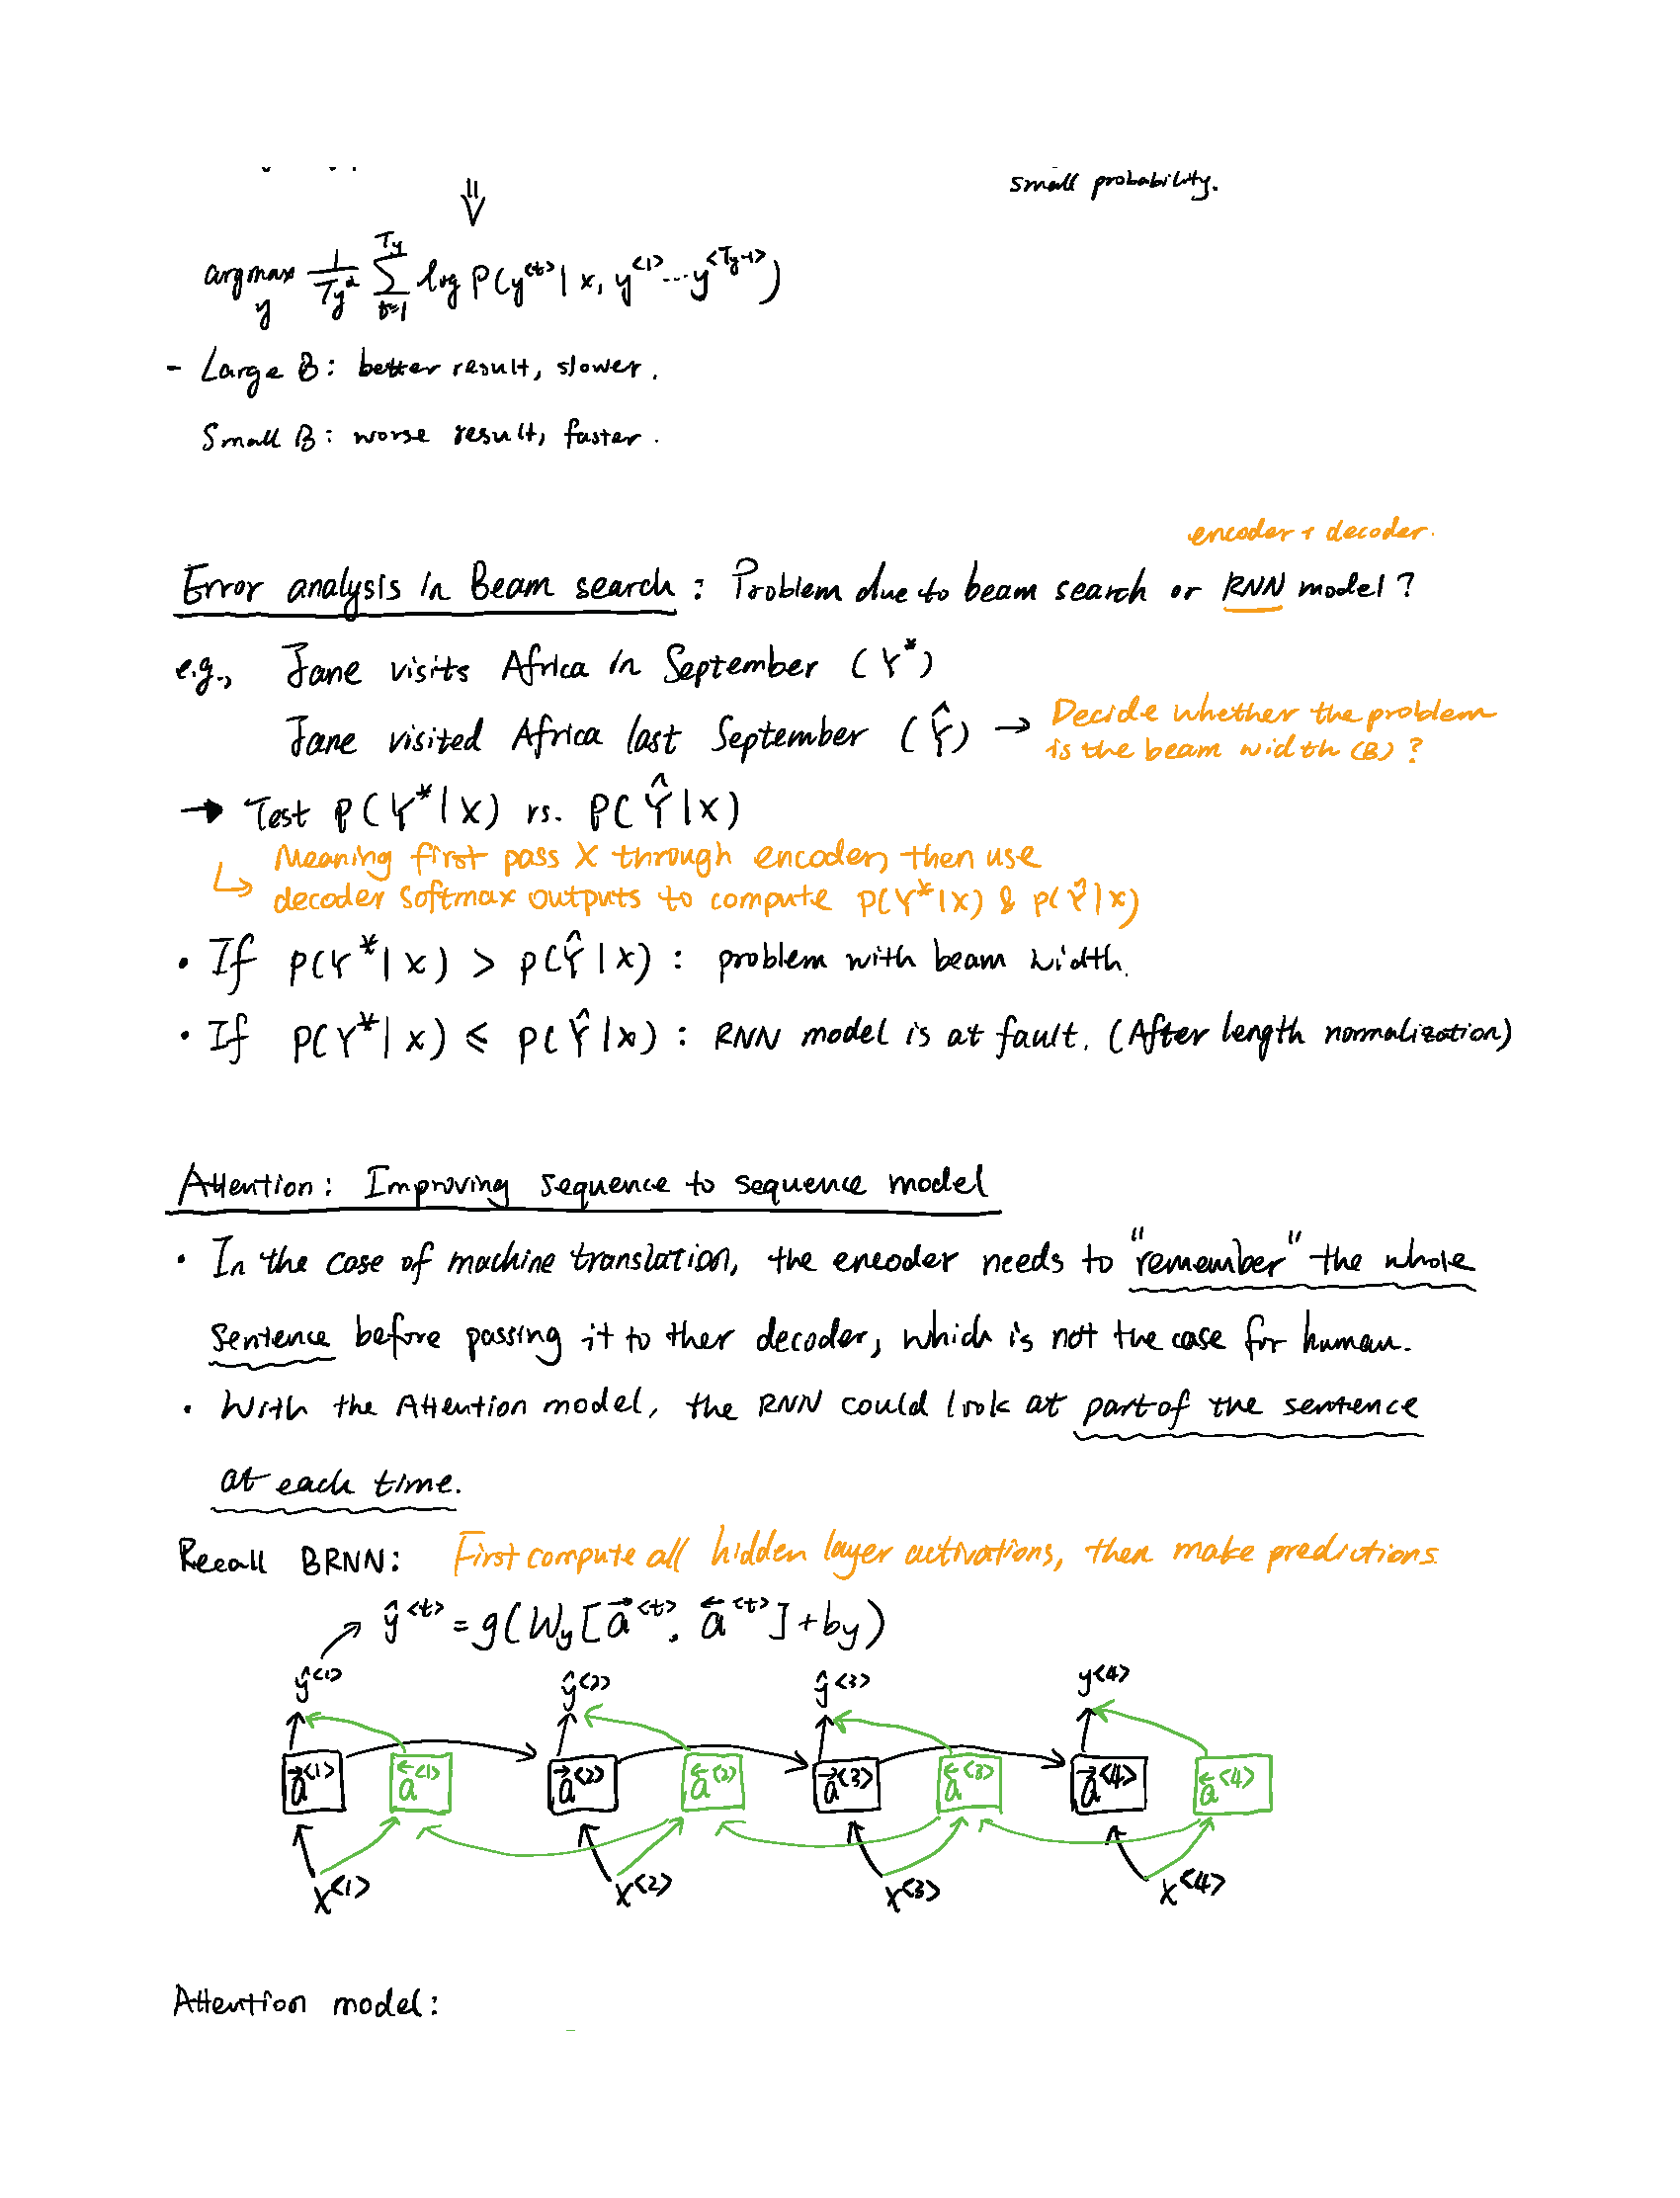 small probability.
⇓
argmax_y 1/Ty^α Σ_{t=1}^{Ty} log P(y^<t> | x, y^<1> ... y^<Ty-1>)
- Large B: better result, slower.
Small B: worse result, faster.
encoder + decoder.
Error analysis in Beam search: Problem due to beam search or RNN model?
e.g., Jane visits Africa in September (Y*)
Jane visited Africa last September (Ŷ) → Decide whether the problem
is the beam width (B)?
→ Test P(Y*|X) vs. P(Ŷ|X)
↳ Meaning first pass X through encoder, then use
decoder softmax outputs to compute P(Y*|X) & P(Ŷ|X)
• If P(Y*|X) > P(Ŷ|X): problem with beam width.
• If P(Y*|X) ≤ P(Ŷ|X): RNN model is at fault. (After length normalization)
Attention: Improving sequence to sequence model
• In the case of machine translation, the encoder needs to "remember" the whole
sentence before passing it to ther decoder, which is not the case for human.
• With the Attention model, the RNN could look at part of the sentence
at each time.
Recall BRNN: First compute all hidden layer activations, then make predictions
ŷ^<t> = g(Wy[a→^<t>, a←^<t>] + by)
ŷ^<1> ŷ^<2> ŷ^<3> y^<4>
a→^<1> a←^<1> a→^<2> a←^<2> a→^<3> a←^<3> a→^<4> a←^<4>
x^<1> x^<2> x^<3> x^<4>
Attention model: